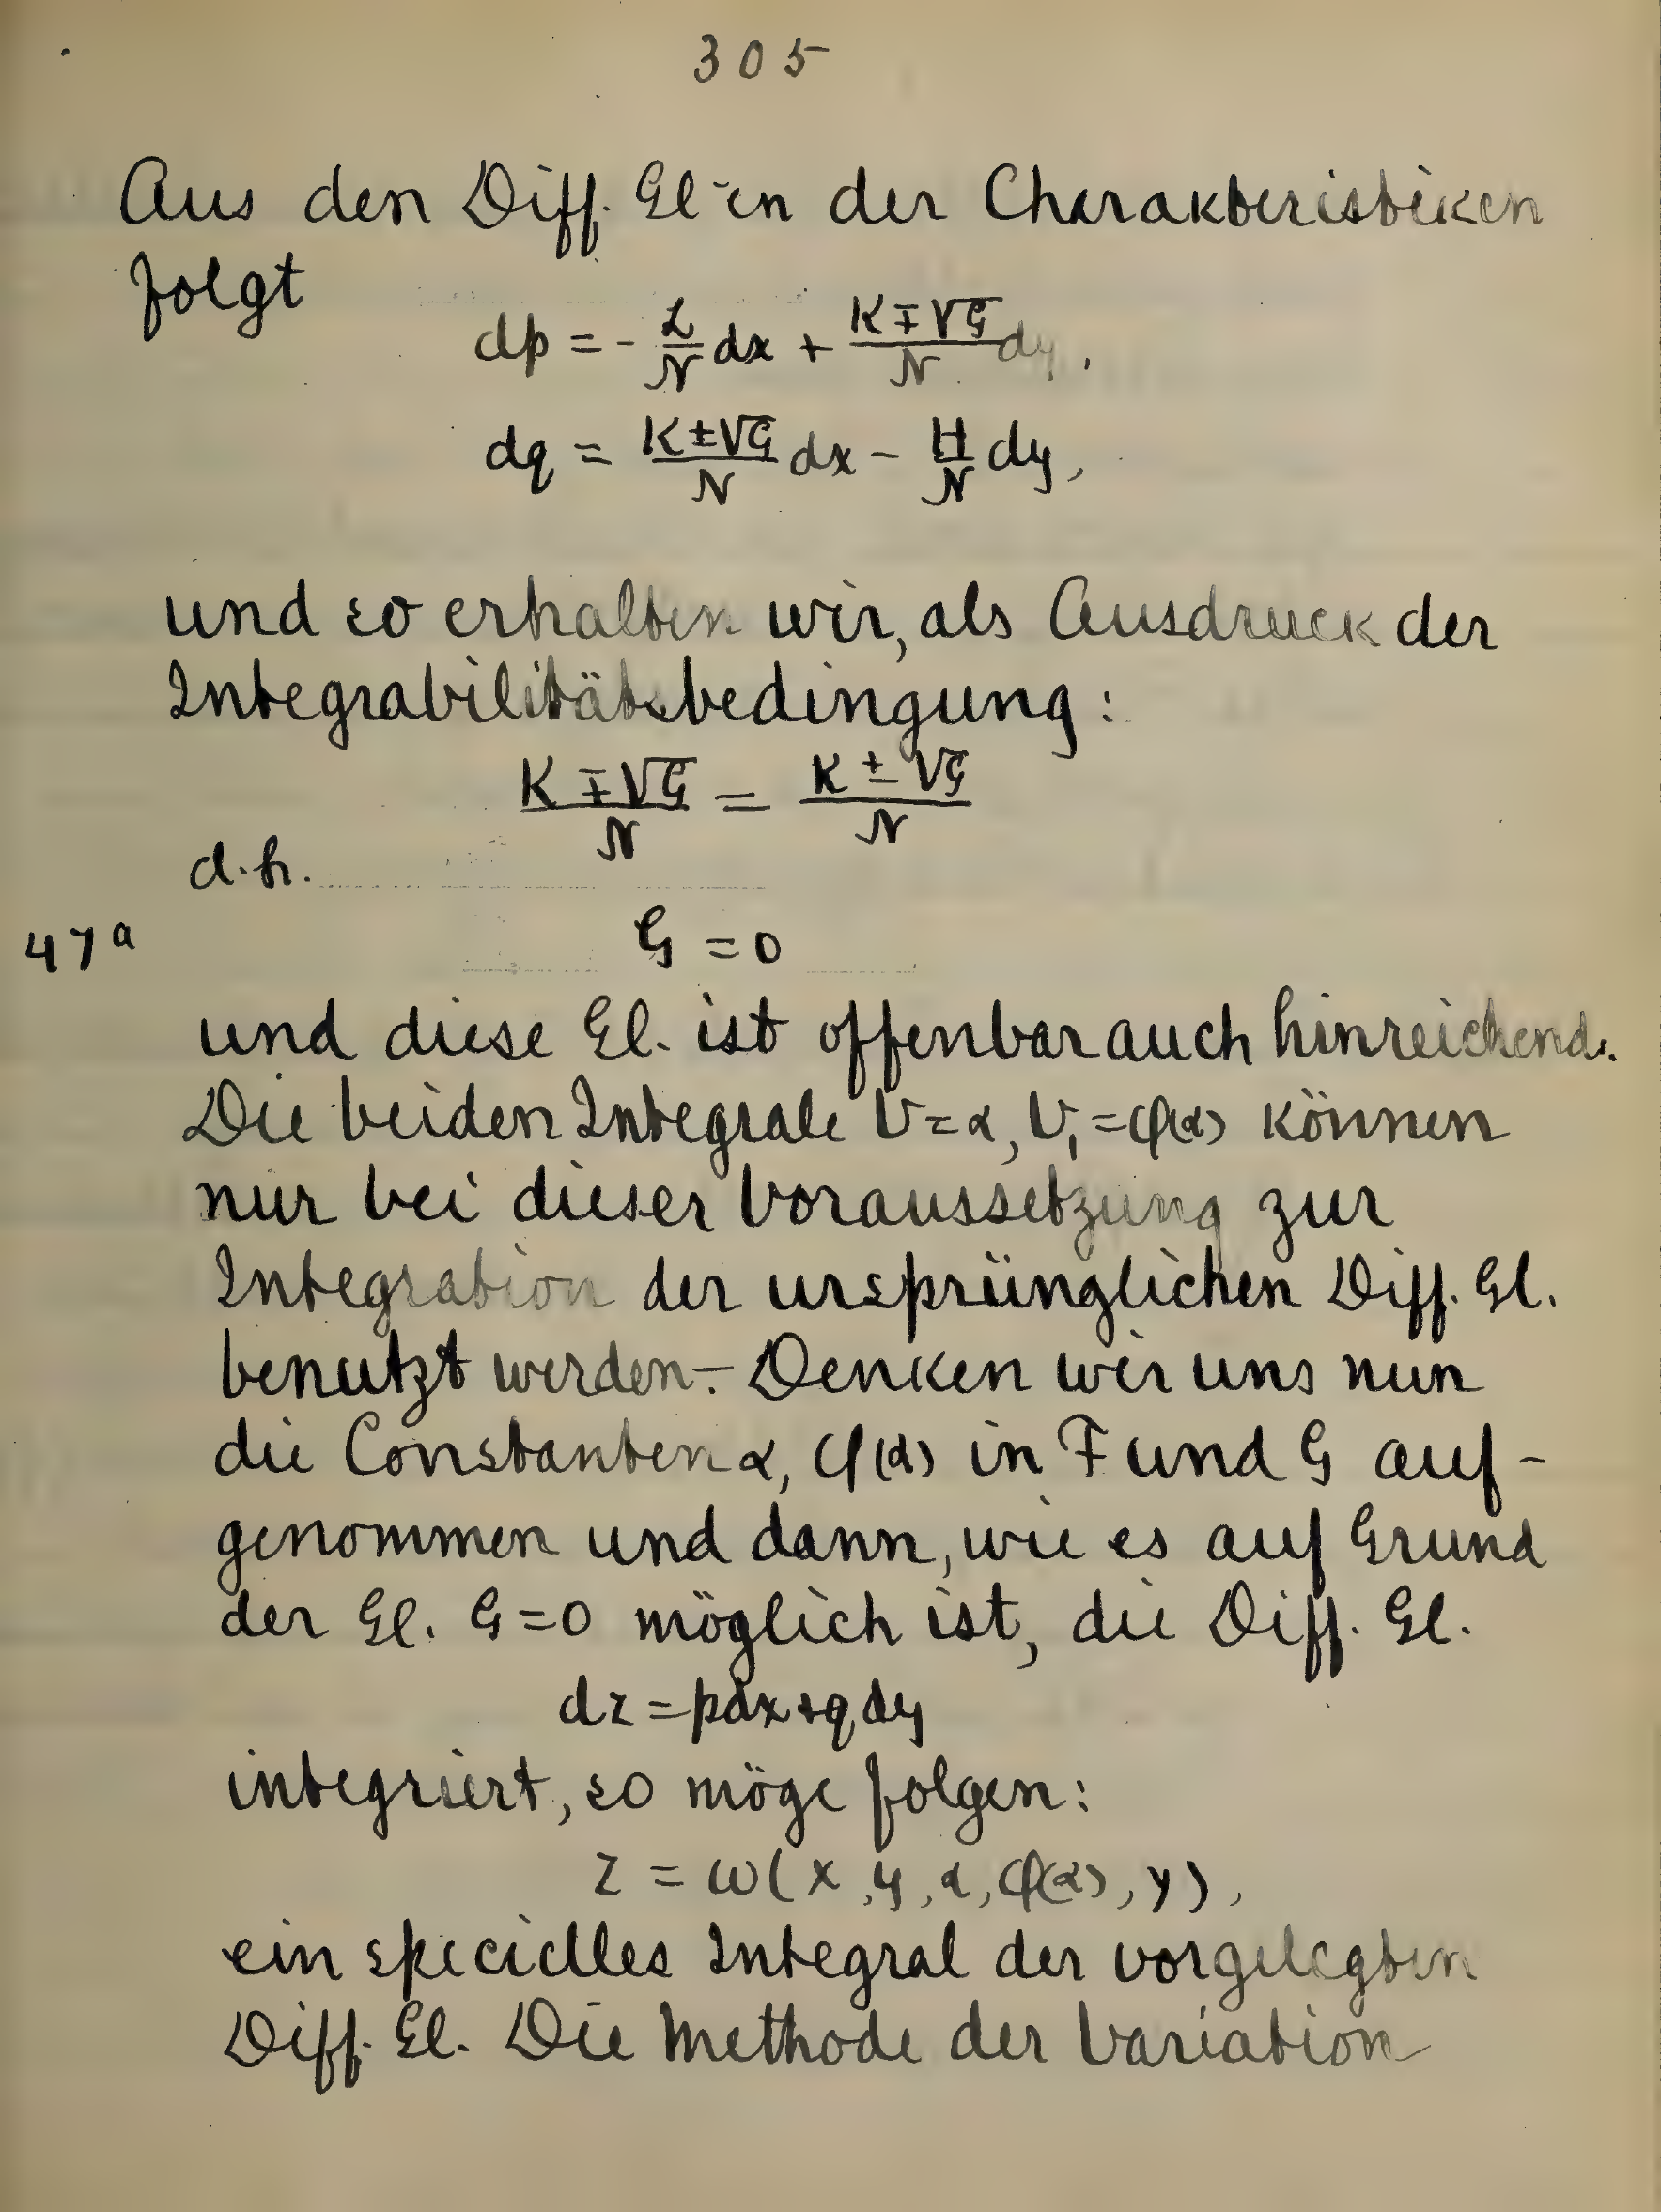 305
Aus den Diff. Gl-en der Charakteristiken
folgt
dp = - L/N dx + (K ∓ √G)/N dy,
dq = (K ± √G)/N dx - H/N dy,
und so erhalten wir, als Ausdruck der
Integrabilitätsbedingung:
(K ∓ √G)/N = (K ± √G)/N
d.h.
47a G = 0
und diese Gl. ist offenbar auch hinreichend.
Die beiden Integrale V = α, V₁ = φ(α) können
nur bei dieser Voraussetzung zur
Integration der ursprünglichen Diff. Gl.
benutzt werden.- Denken wir uns nun
die Constanten α, φ(α) in F und G auf-
genommen und dann, wie es auf Grund
der Gl. G = 0 möglich ist, die Diff. Gl.
dz = pdx + qdy
integriert, so möge folgen:
z = ω(x, y, α, φ(α), γ),
ein specielles Integral der vorgelegten
Diff. Gl. Die Methode der Variation